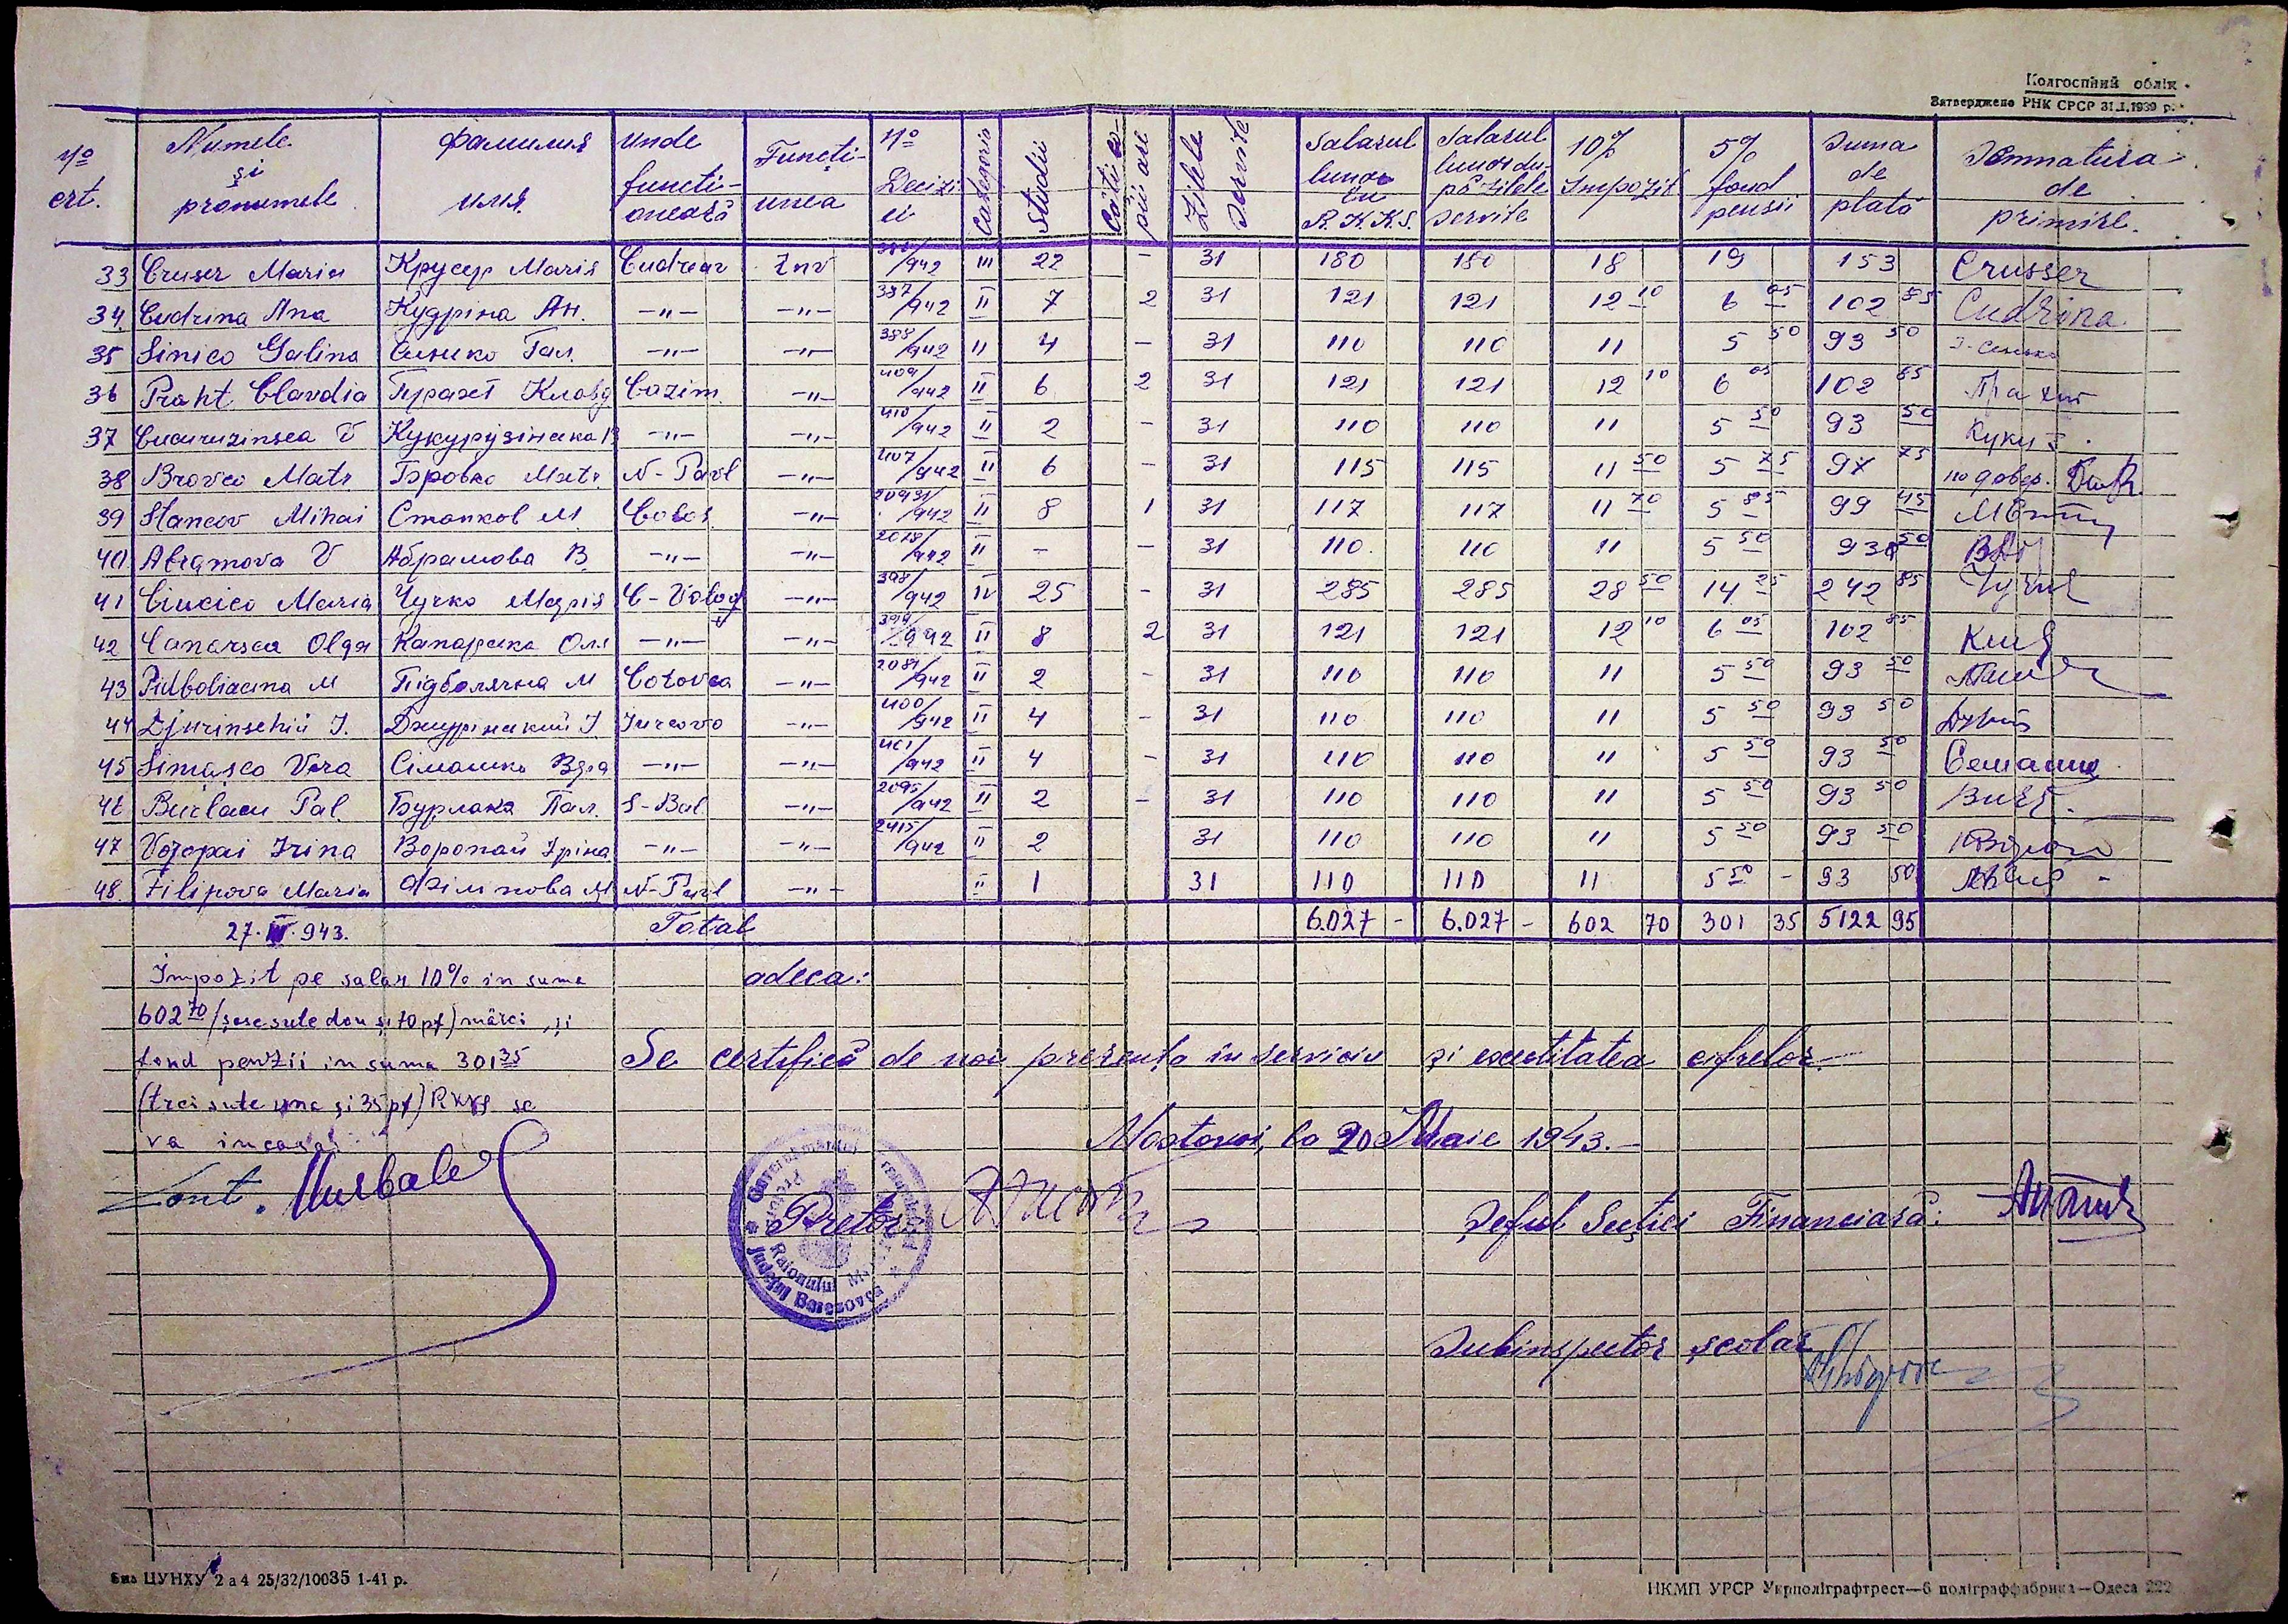 Колгоспний облік
Затверджено РНК СРСР 31.I.1939 р.
No crt. Numele și pronumele Фамилия имя Unde funcționează Funcțiunea No Deciziei Categoria Studii Câți copii are Zilele servite Salarul lunar în R.K.K.S. Salarul lunar du-pă zilele servite 10% Impozit 5% fond pensii Suma de plată Semnatura de primire.
33 Cruser Maria Крусер Марія Cudreav Înv /942 III 22 - 31 180 180 18 19 153 Crusser
34 Cudrina Ana Кудріна Ан. —"— —"— 387/942 II 7 2 31 121 121 12 10 6 05 102 85 Cudrina
35 Sinico Galina Синико Гал. —"— —"— 388/942 II 4 - 31 110 110 11 5 50 93 50
36 Praht Clavdia Прахт Клавд Cazim. —"— 409/942 II 6 2 31 121 121 12 10 6 05 102 85 Прахт
37 Cucuruzinsca V Кукурузінська В —"— —"— 410/942 II 2 - 31 110 110 11 5 50 93 50 Куку З.
38 Brovco Matr. Бровко Матр. N-Pavl —"— 407/942 II 6 - 31 115 115 11 50 5 75 97 75 по довер.
39 Stancov Mihai Станков М. Colos. —"— 20931/942 II 8 1 31 117 117 11 70 5 85 99 45
40 Abramova V Абрамова В. —"— —"— 2028/942 II - - 31 110. 110 11 5 50 93 50
41 Ciucico Maria Чучко Марія C-Volog —"— 398/942 IV 25 - 31 285 285 28 50 14 25 242 85
42 Canarsca Olga Канарска Оля —"— —"— 399/942 II 8 2 31 121 121 12 10 6 05 102 85
43 Pidboliacina M Підболячна М Cotovca —"— 2081/942 II 2 - 31 110 110 11 5 50 93 50
44 Djurinschii I. Джурінський І Iurcovo —"— 400/942 II 4 - 31 110 110 11 5 50 93 50
45 Simașco Vera Сімашко Вера —"— —"— 401/942 II 4 - 31 110 110 11 5 50 93 50
46 Burlacu Pal. Бурлака Пал. S-Bal. —"— 2095/942 II 2 - 31 110 110 11 5 50 93 50
47 Voropai Irina Воропай Іріна —"— —"— 2415/942 II 2 31 110 110 11 5 50 93 50
48. Filipova Maria Філіпова М N-Pavl —"— II 1 31 110 110 11 5 50 - 93 50
27.IV.943. Total 6.027 - 6.027 - 602 70 301 35 5122 95
Impozit pe salar 10% in suma adeca:
602 70 /șase sute dou și 70 pf) mărci, și
fond penzii in suma 301 35 Se certifică de noi prezența în serviciu și exactitatea cifrelor.—
(trei sute una și 35 pf) RKKS se
va incasa Mostovoi, la 20 Maie 1943.—
Cont.
Pretor: Șeful Secției Financiară:
Guvernământul
Pretura
Raionului
Județul Berezovca
Subinspector școlar
Биз ЦУНХУ 2 а 4 25/32/10035 1-41 р.
НКМП УРСР Укрполіграфтрест—6 поліграффабрика—Одеса 222